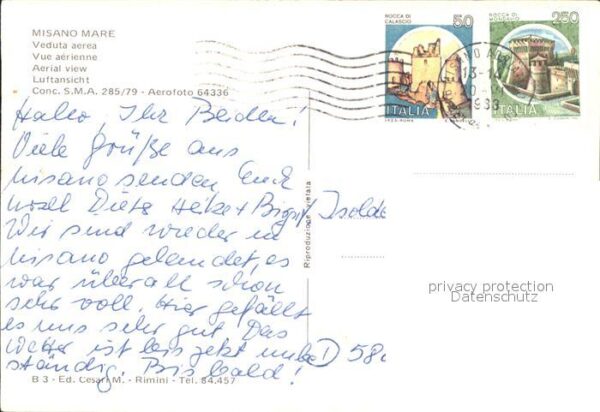 MISANO MARE
Veduta aerea
Vue aérienne
Aerial view
Luftansicht
Conc. S.M.A. 285/79 - Aerofoto 64336
ROCCA DI
CALASCIO
50
ITALIA
ROCCA DI
MONDAVIO
250
ITALIA
13-14
Hallo, Ihr Beiden!
Viele Grüße aus
Misano senden Euch
Dieter Heike + Birgit, Isolde
Wir sind wieder in
Misano gelandet, es
war überall schon
sehr voll. Hier gefällt
es uns sehr gut. Das
Wetter ist bis jetzt unbe
ständig. Bis bald!
D 58
Riproduzione vietata
privacy protection
Datenschutz
B 3 - Ed. Cesari M. - Rimini - Tel. 84.457